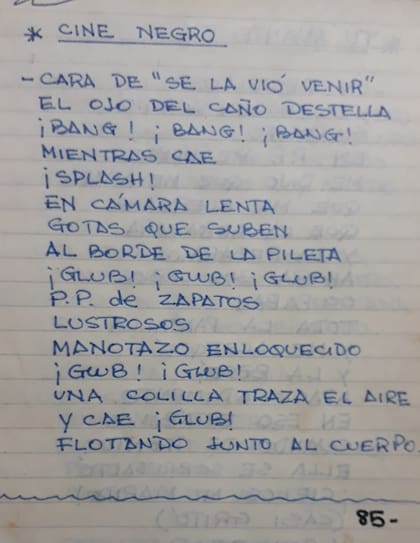 * CINE NEGRO
- CARA DE "SE LA VIÓ VENIR"
EL OJO DEL CAÑO DESTELLA
¡BANG! ¡BANG! ¡BANG!
MIENTRAS CAE
¡SPLASH!
EN CÁMARA LENTA
GOTAS QUE SUBEN
AL BORDE DE LA PILETA
¡GLUB! ¡GLUB! ¡GLUB!
P.P. de ZAPATOS
LUSTROSOS
MANOTAZO ENLOQUECIDO
¡GLUB! ¡GLUB!
UNA COLILLA TRAZA EL AIRE
Y CAE ¡GLUB!
FLOTANDO JUNTO AL CUERPO.
85-